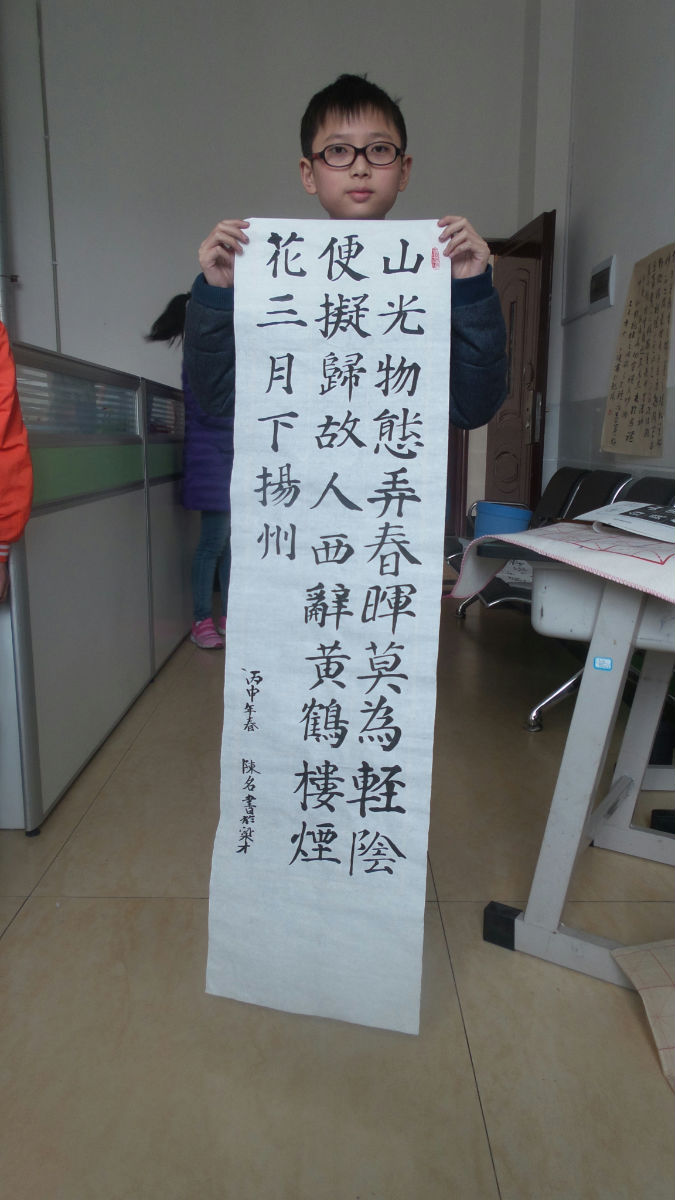 山光物態弄春暉莫為輕陰
便擬歸故人西辭黃鶴樓煙
花三月下揚州
丙申年春
陳名書於梁才